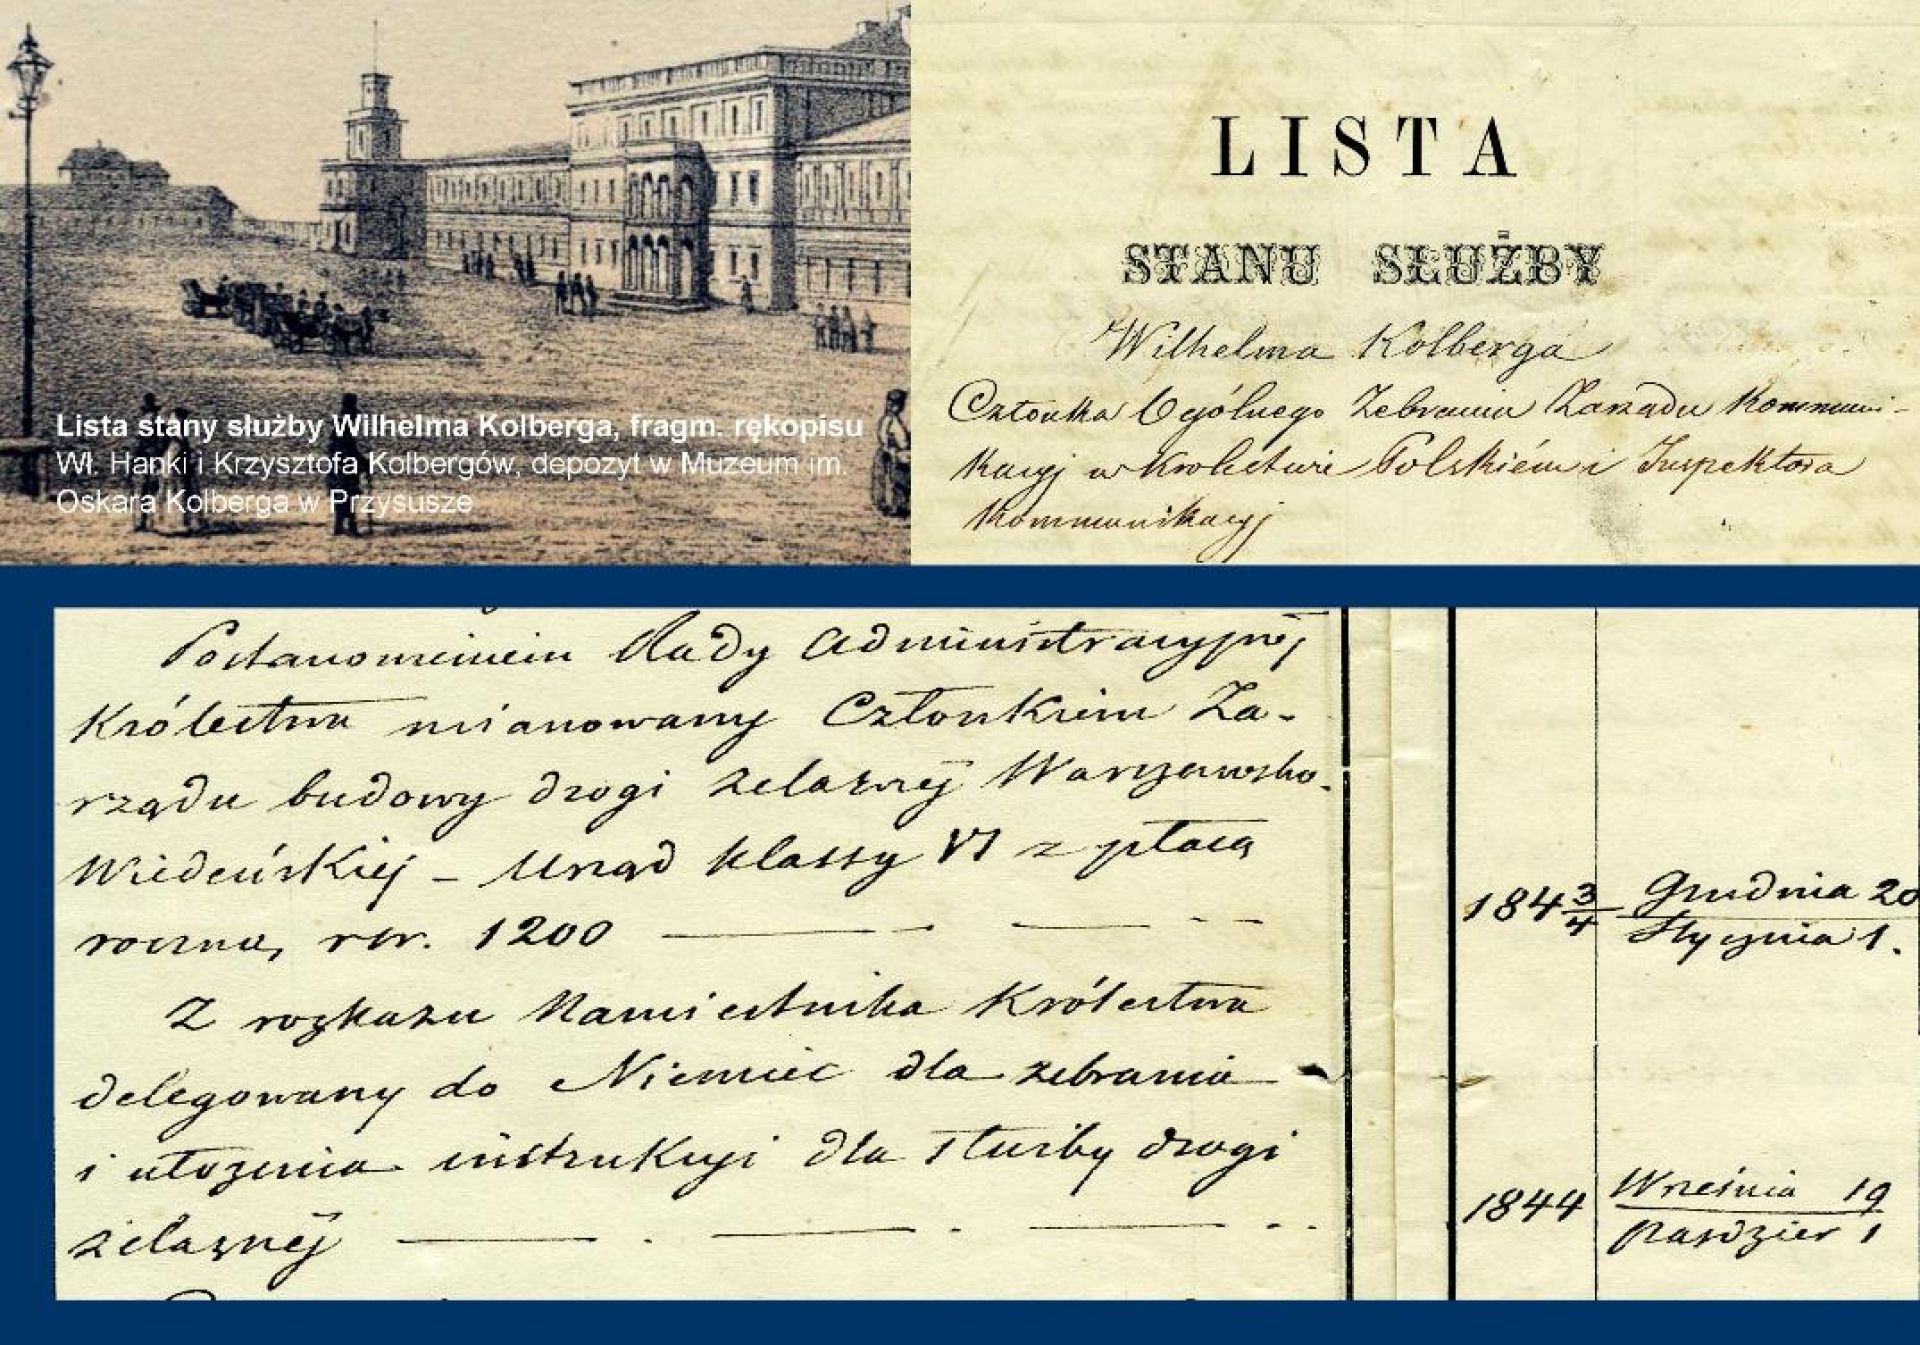 Lista stany służby Wilhelma Kolberga, fragm. rękopisu
Wł. Hanki i Krzysztofa Kolbergów, depozyt w Muzeum im.
Oskara Kolberga w Przysusze
LISTA
STANU SŁUŻBY
Wilhelma Kolberga
Członka Ogólnego Zebrania Zarządu Kommuni-
kacyj w Krolestwie Polskiém i Inspektora
Kommunikacyj
Postanowieniem Rady Administracyjnéj
Królestwa mianowany Członkiem Za-
rządu budowy drogi żelaznéj Warszawsko-
Wiedeńskiej – Urząd klassy VI z płacą
roczną rsr. 1200
1843/4 Grudnia 20
Stycznia 1.
Z rozkazu Namiestnika Królestwa
delegowany do Niemiec dla zebrania
i ułożenia instrukcyi dla służby drogi
żelaznéj
1844 Września 19
Paździer 1